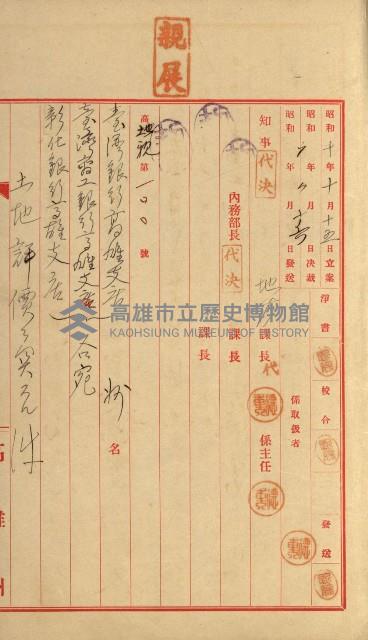 親展
昭和十年十月十五日立案 淨書 校合 發送
昭和 年 月 日決裁
昭和 年 月 日發送 係取扱者
知事 代決 地 課長 代 係主任
內務部長 代決 課長
課長
高地 第一〇〇號
臺灣銀行高雄支店
臺灣商工銀行高雄支店 各宛 州名
彰化銀行高雄支店
土地評價 件
高雄市立歷史博物館
KAOHSIUNG MUSEUM OF HISTORY